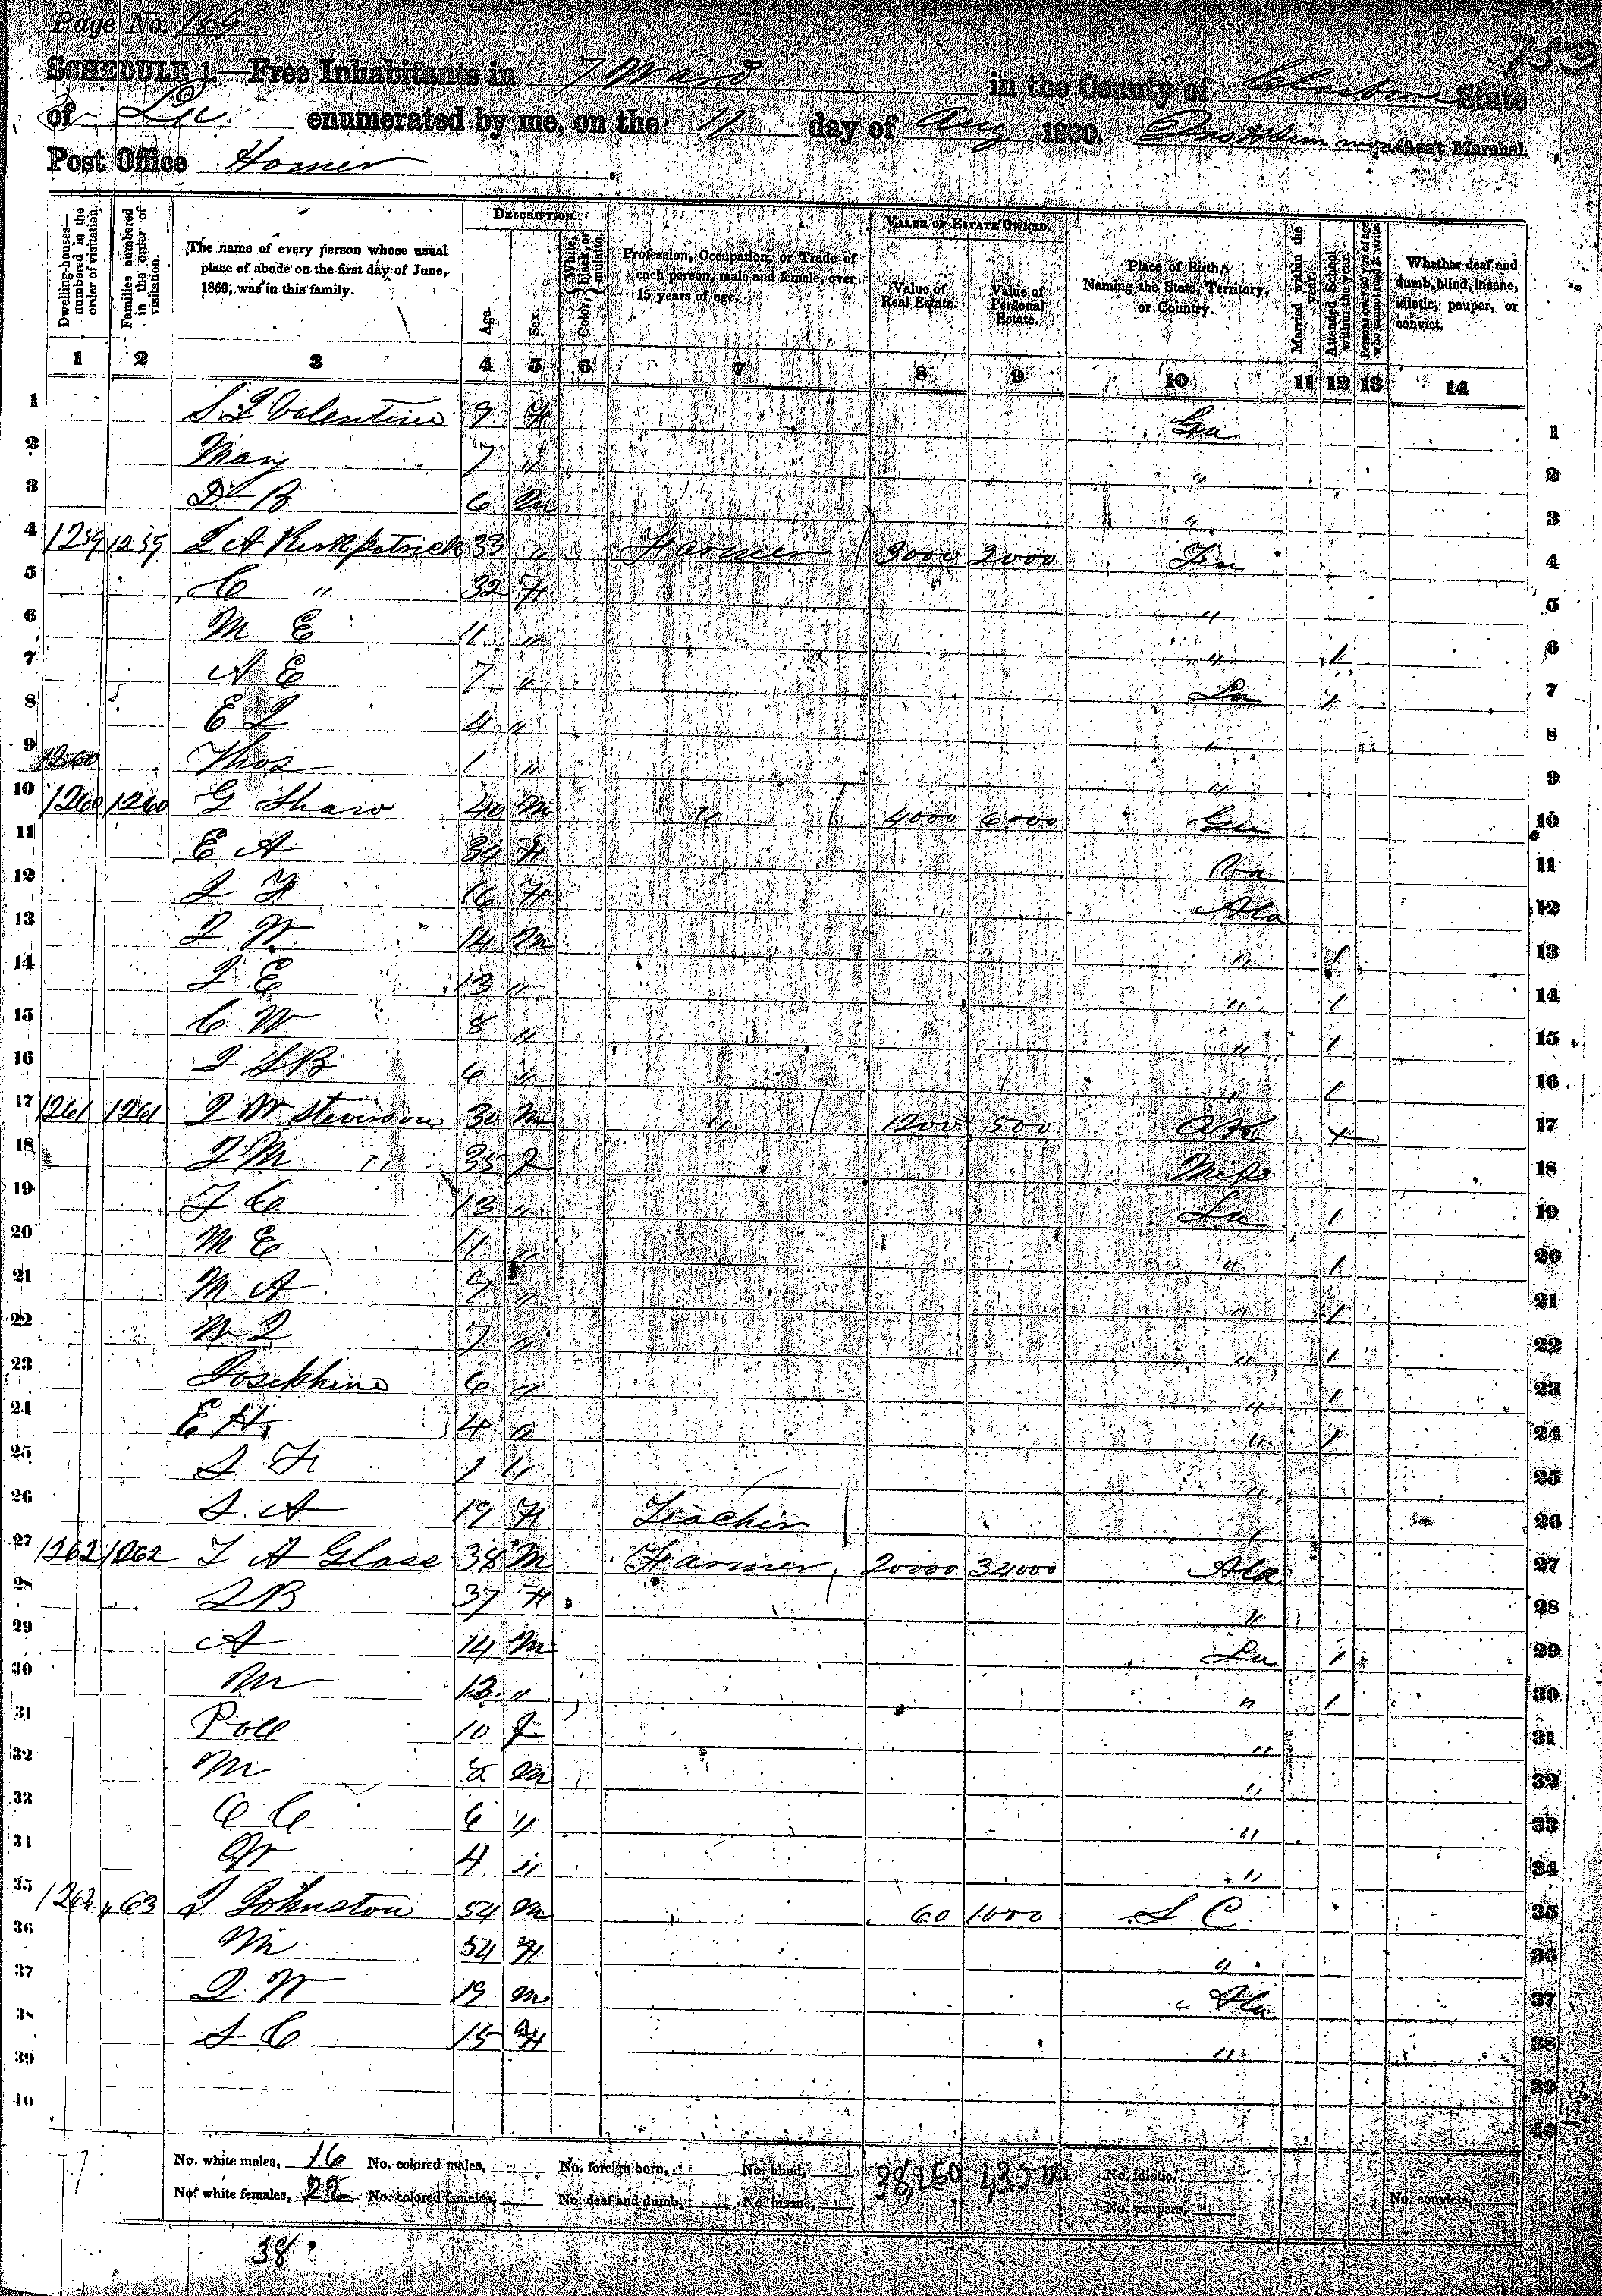 Page No. 169
753
SCHEDULE 1.—Free Inhabitants in 7 Ward in the County of Claiborne State
of La. enumerated by me, on the 11 day of Aug 1860. Ass't Marshal.
Post Office Homer
Dwelling-houses—numbered in the order of visitation.
Families numbered in the order of visitation.
The name of every person whose usual place of abode on the first day of June, 1860, was in this family.
DESCRIPTION.
Age.
Sex.
Color, { White, black, or mulatto.
Profession, Occupation, or Trade of each person, male and female, over 15 years of age.
VALUE OF ESTATE OWNED.
Value of Real Estate.
Value of Personal Estate.
Place of Birth, Naming the State, Territory, or Country.
Married within the year.
Attended School within the year.
Persons over 20 y'rs of age who cannot read & write.
Whether deaf and dumb, blind, insane, idiotic, pauper, or convict.
1 2 3 4 5 6 7 8 9 10 11 12 13 14
1 Valentine 9 F Ga 1
2 Mary 7 " " 2
3 D B 6 M " 3
4 1259 1259 J A Kirkpatrick 33 " Farmer 3000 2000 Ten 4
5 C " 32 F " 5
6 M E 11 " " 1 6
7 A E 7 " La 1 7
8 E J 4 " " 8
9 1260 Thos 1 " " 9
10 1260 1260 G Shaw 40 M " 4000 6000 Ga 10
11 E A 34 F 11
12 J F 16 F Ala 12
13 J W 14 M " 1 13
14 J E 13 " " 1 14
15 C W 8 " " 1 15
16 J S B 6 " " 1 16
17 1261 1261 J W Stevinson 30 M " 1200 500 Ark 17
18 J M " 35 F Miss 18
19 J C 13 " La 1 19
20 M E 11 " " 1 20
21 M A 9 " " 1 21
22 M J 7 " " 1 22
23 Josephine 6 " " 1 23
24 E H 4 " " 1 24
25 S F 1 " " 25
26 S A 19 F Teacher " 26
27 1262 1262 T A Glass 38 M Farmer 20000 34000 Ala 27
28 S B 37 F " 28
29 A 14 M La 1 29
30 M 13 " " 1 30
31 Poll 10 F " 31
32 M 8 M " 32
33 C C 6 " " 33
34 W 4 " " 34
35 1263 63 J Johnston 54 M 60 1000 S C 35
36 M 54 F " 36
37 J W 19 M Ala 37
38 S C 15 F " 38
39 39
40 40
No. white males, 16 No. colored males, No. foreign born, No. blind, 28,260 43500 No. idiotic,
No. white females, 22 No. colored females, No. deaf and dumb, No. insane, No. paupers, No. convicts,
38